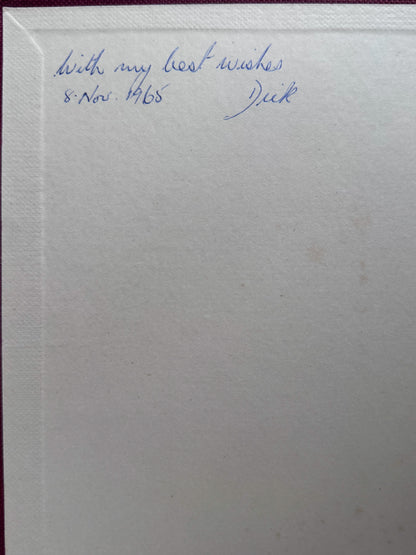 With my best wishes
8. Nov. 1965 Dick